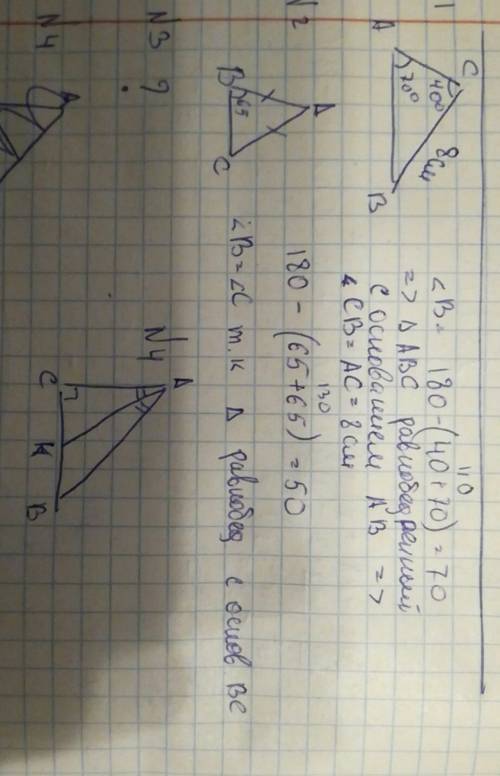 1
C
40°
A
70°
8 см
B
∠B = 180 - (40 + 70) = 70
110
=> Δ ABC равнобедренный
с основанием AB =>
CB = AC = 8 см
N2
A
B
65
C
130
180 - (65 + 65) = 50
∠B = ∠C т.к Δ равнобед с основ BC
N3 ?
N4
A
N4
A
C
K
B